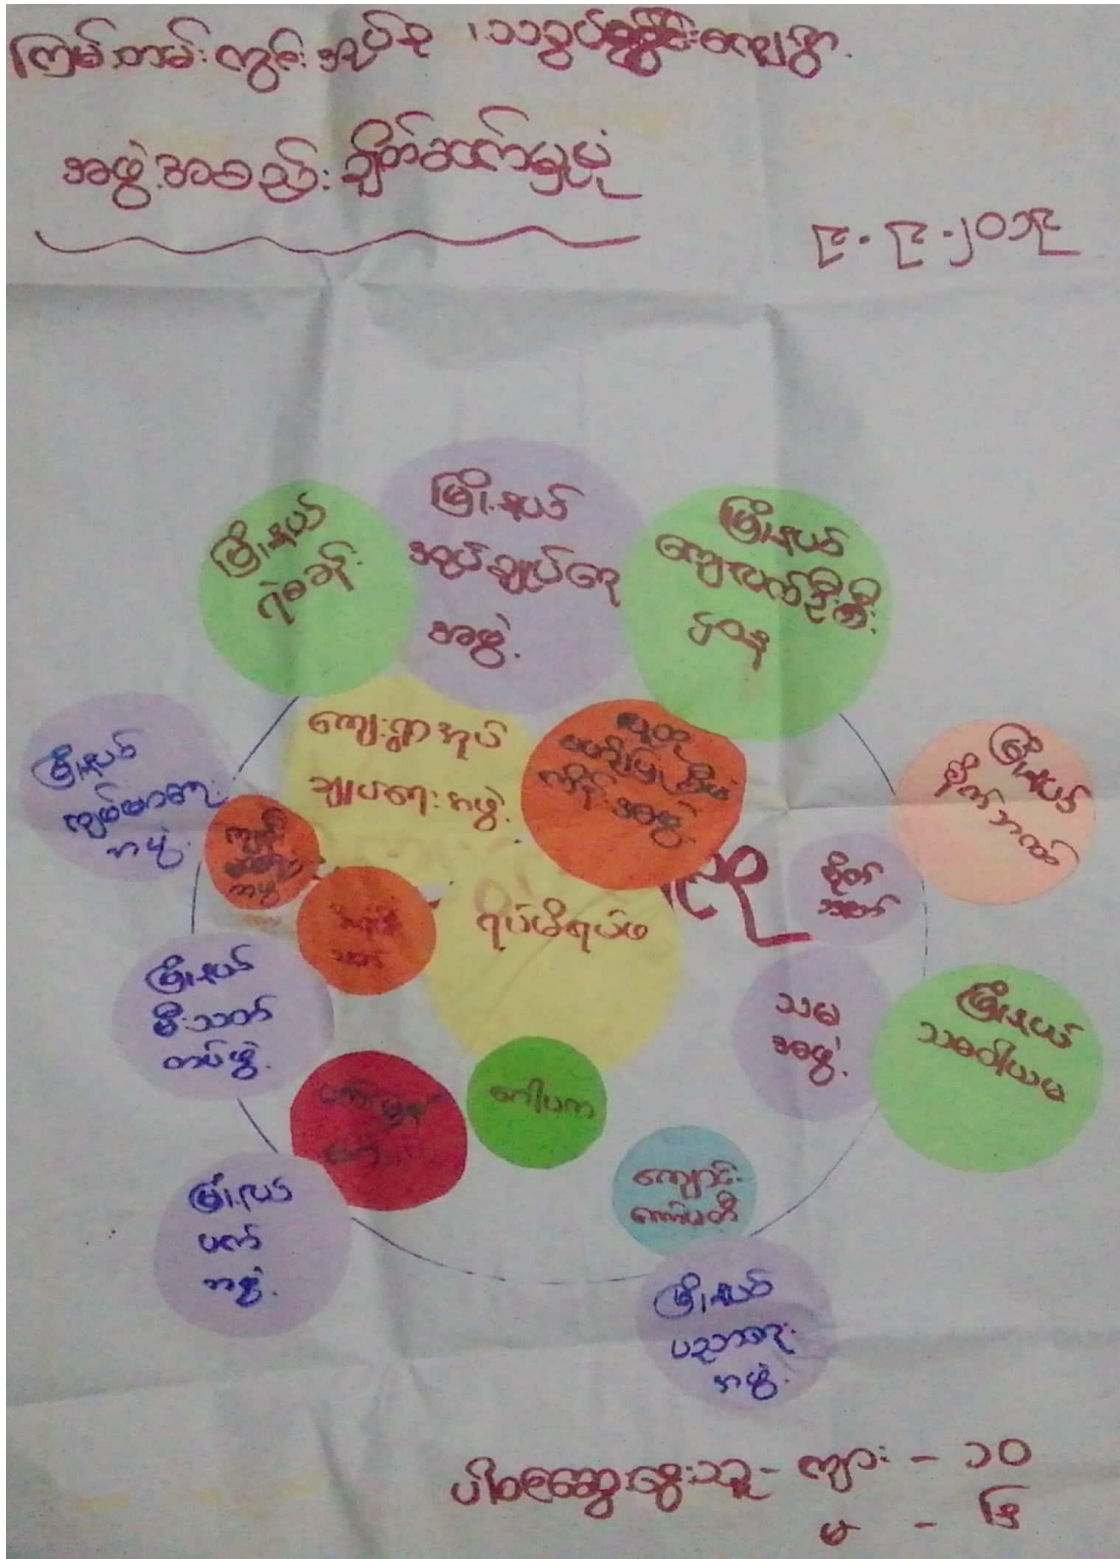 ကြိမ်တမ်းကွင်း အုပ်စု၊ ကျေးရွာ
အဖွဲ့အစည်း ချိတ်ဆက်မှုပုံ
၉.၉.၂၀၁၉
မြို့နယ်
ရဲစခန်း
မြို့နယ်
အုပ်ချုပ်ရေး
အဖွဲ့
မြို့နယ်
ကျေးလက်ဦးစီး
ဌာန
ကျေးရွာအုပ်
ချုပ်ရေးအဖွဲ့
မြို့နယ်
ကျန်းမာရေး
အဖွဲ့
မြို့နယ်
စိုက်ဘဏ်
စိုက်
ဘဏ်
ရပ်မိရပ်ဖ
မြို့နယ်
မီးသတ်
တပ်ဖွဲ့
သမ
အဖွဲ့
မြို့နယ်
သမဝါယမ
ဂေါပက
ကျောင်း
ကော်မတီ
မြို့နယ်
ပတ်
အဖွဲ့
မြို့နယ်
ပညာရေး
အဖွဲ့
ပါဝင်ဆွေးနွေးသူ - ကျား - ၁၀
မ -